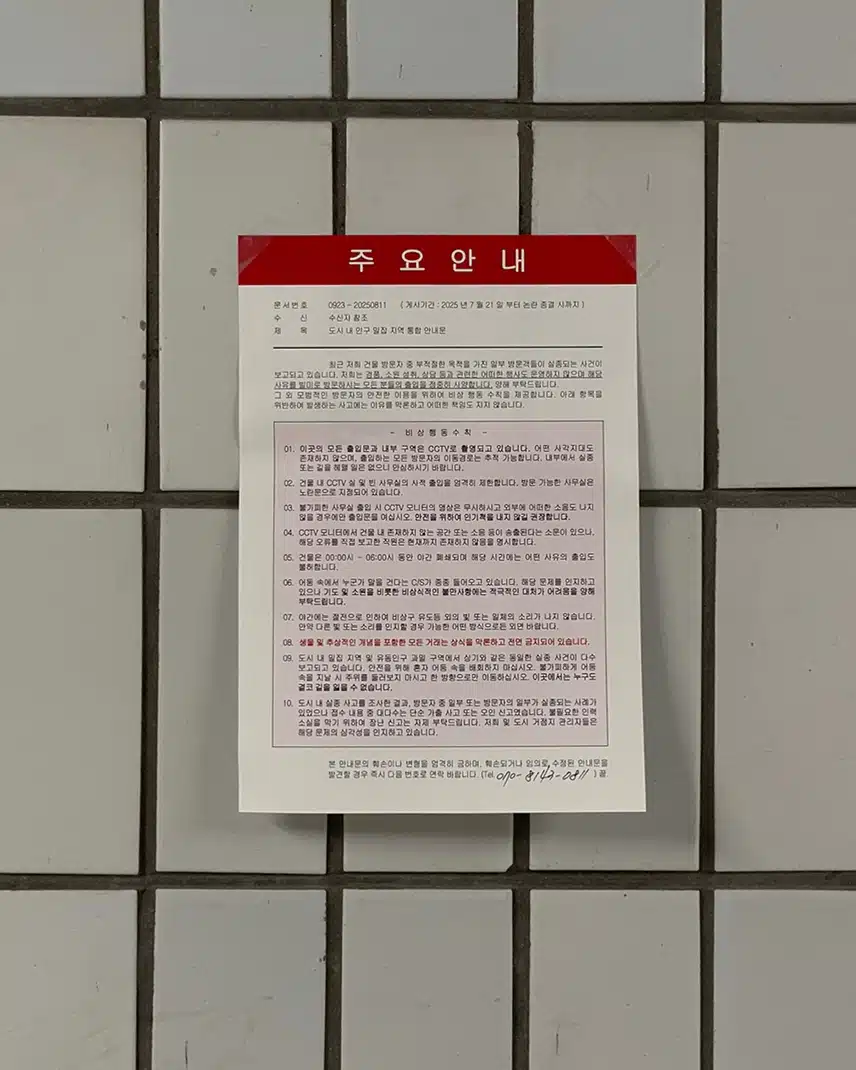 주요안내
문서번호 0923 - 20250811 ( 게시기간 : 2025 년 7 월 21 일 부터 논란 종결 시까지 )
수 신 수신자 참조
제 목 도시 내 인구 밀집 지역 통합 안내문
최근 저희 건물 방문자 중 부적절한 목적을 가진 일부 방문객들이 실종되는 사건이
보고되고 있습니다. 저희는 경품, 소원 성취, 상담 등과 관련한 어떠한 행사도 운영하지 않으며 해당
사유를 빌미로 방문하시는 모든 분들의 출입을 정중히 사양합니다. 양해 부탁드립니다.
그 외 모범적인 방문자의 안전한 이용을 위하여 비상 행동 수칙을 제공합니다. 아래 항목을
위반하여 발생하는 사고에는 이유를 막론하고 어떠한 책임도 지지 않습니다.
- 비상행동수칙 -
01. 이곳의 모든 출입문과 내부 구역은 CCTV로 촬영되고 있습니다. 어떤 사각지대도
존재하지 않으며, 출입하는 모든 방문자의 이동경로는 추적 가능합니다. 내부에서 실종
또는 길을 헤맬 일은 없으니 안심하시기 바랍니다.
02. 건물 내 CCTV 실 및 빈 사무실의 사적 출입을 엄격히 제한합니다. 방문 가능한 사무실은
노란문으로 지정되어 있습니다.
03. 불가피한 사무실 출입 시 CCTV 모니터의 영상은 무시하시고 외부에 어떠한 소음도 나지
않을 경우에만 출입문을 여십시오. 안전을 위하여 인기척을 내지 않길 권장합니다.
04. CCTV 모니터에서 건물 내 존재하지 않는 공간 또는 소음 등이 송출된다는 소문이 있으나,
해당 오류를 직접 보고한 직원은 현재까지 존재하지 않음을 명시합니다.
05. 건물은 00:00시 - 06:00시 동안 야간 폐쇄되며 해당 시간에는 어떤 사유의 출입도
불허합니다.
06. 어둠 속에서 누군가 말을 건다는 C/S가 종종 들어오고 있습니다. 해당 문제를 인지하고
있으나 기도 및 소원을 비롯한 비상식적인 불만사항에는 적극적인 대처가 어려움을 양해
부탁드립니다.
07. 야간에는 절전으로 인하여 비상구 유도등 외의 빛 또는 일체의 소리가 나지 않습니다.
만약 다른 빛 또는 소리를 인지할 경우 가능한 어떤 방식으로든 외면 바랍니다.
08. 생물 및 추상적인 개념을 포함한 모든 거래는 상식을 막론하고 전면 금지되어 있습니다.
09. 도시 내 밀집 지역 및 유동인구 과밀 구역에서 상기와 같은 동일한 실종 사건이 다수
보고되고 있습니다. 안전을 위해 혼자 어둠 속을 배회하지 마십시오. 불가피하게 어둠
속을 지날 시 주위를 둘러보지 마시고 한 방향으로만 이동하십시오. 이곳에서는 누구도
결코 길을 잃을 수 없습니다.
10. 도시 내 실종 사고를 조사한 결과, 방문자 중 일부 또는 방문자의 일부가 실종되는 사례가
있었으나 접수 내용 중 대다수는 단순 가출 사고 또는 오인 신고였습니다. 불필요한 인력
소실을 막기 위하여 장난 신고는 자제 부탁드립니다. 저희 및 도시 거점지 관리자들은
해당 문제의 심각성을 인지하고 있습니다.
본 안내문의 훼손이나 변형을 엄격히 금하며, 훼손되거나 임의로 수정된 안내문을
발견할 경우 즉시 다음 번호로 연락 바랍니다. (Tel. 070-8143-0811 ) 끝